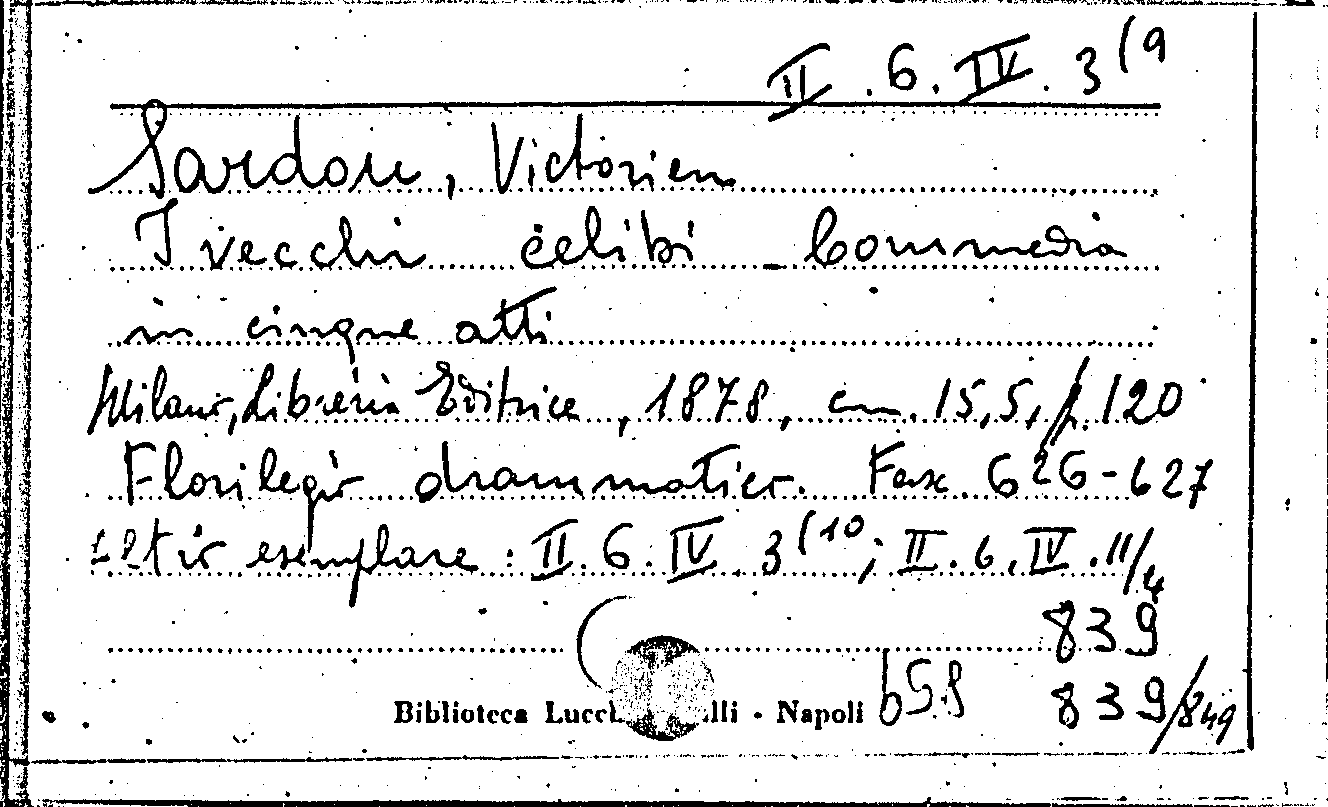 II . 6 . IV . 3 (9
Sardou, Victorien
I vecchi celibi - Commedia
in cinque atti
Milano, Libreria Editrice, 1878, cm. 15,5, p. 120
Florilegio drammatico. Fasc. 626-627
altro esemplare : II. 6. IV. 3 (10; II. 6. IV. 11/4
839
Biblioteca Lucch lli - Napoli
839/849